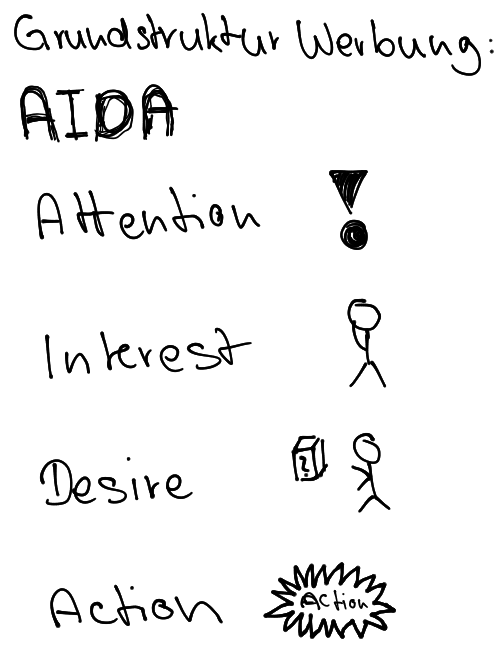 Grundstruktur Werbung:
AIDA
Attention !
Interest
Desire ?
Action Action